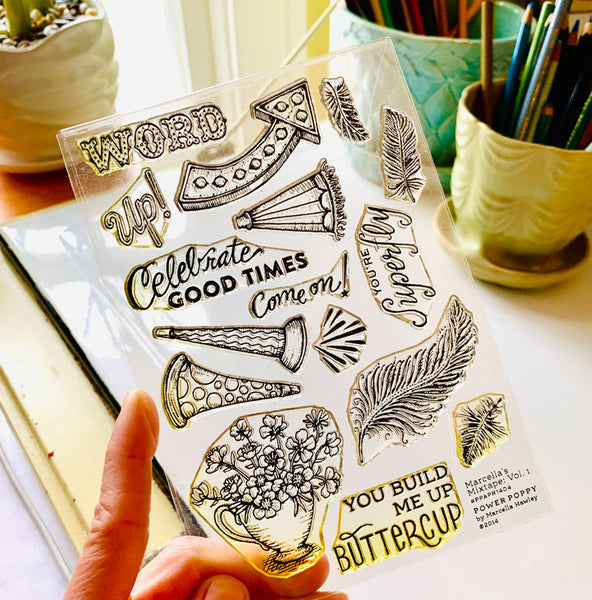 WORD
Up!
Celebrate
GOOD TIMES
Come on!
YOU'RE
Superfly
YOU BUILD
ME UP
BUTTERCUP
Marcella's
Mixtape: Vol. 1
#PPAPR1404
POWER POPPY
by Marcella Hawley
©2014